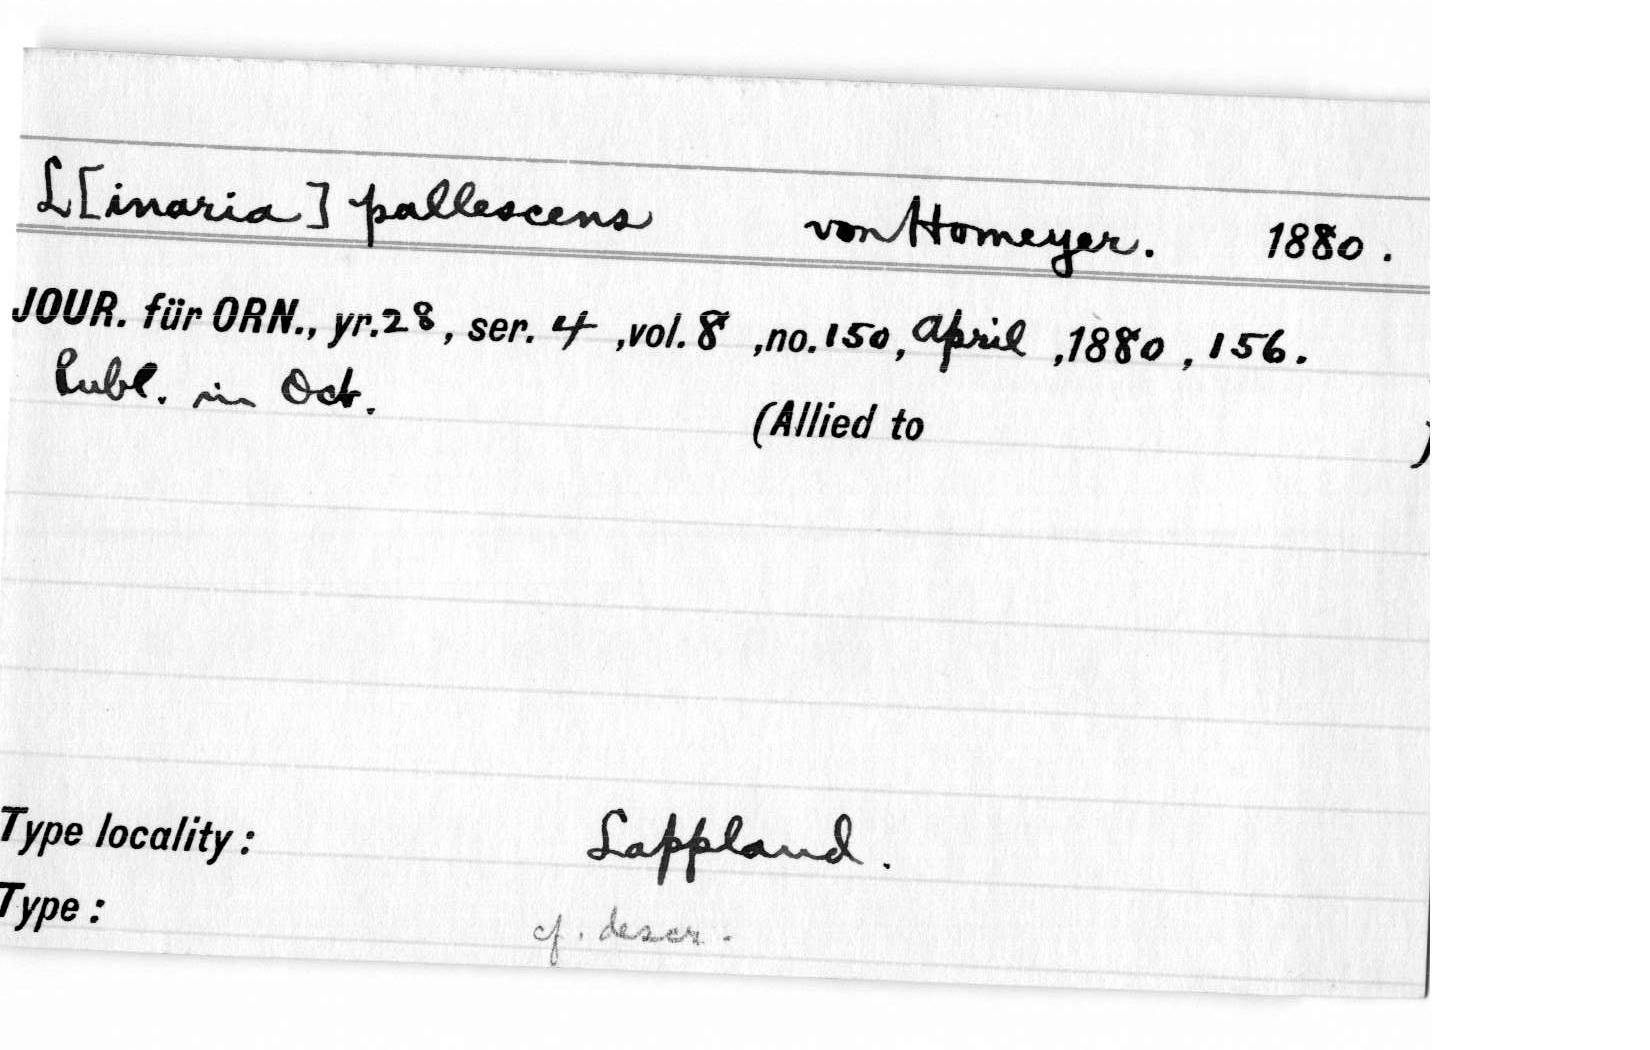 L[inaria] pallescens von Homeyer. 1880.
JOUR. für ORN., yr.28, ser. 4 ,vol. 8 ,no.150, April ,1880 , 156.
Publ. in Oct.
(Allied to )
Type locality: Lappland.
Type: cf. descr.